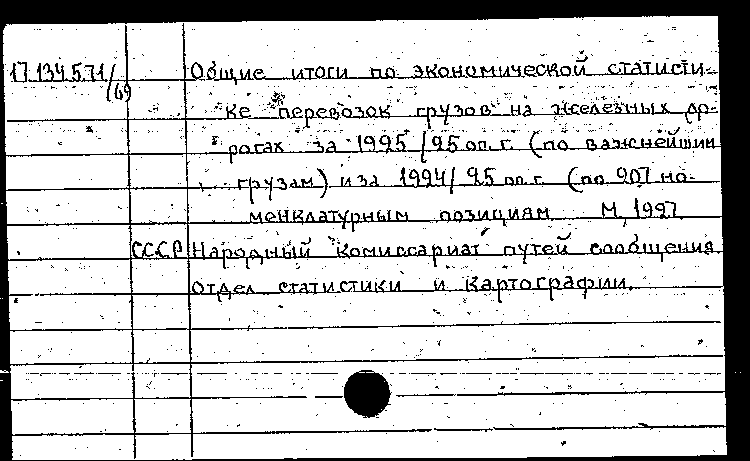 17.134.5.71/69 Общие итоги по экономической статисти-
ке перевозок грузов на железных до-
рогах за 1925/25 оп. г. (по важнейшим
грузам) и за 1924/25 оп. г. (по 207 но-
менклатурным позициям М, 1927
СССР Народный комиссариат путей сообщения
отдел статистики и картографии.